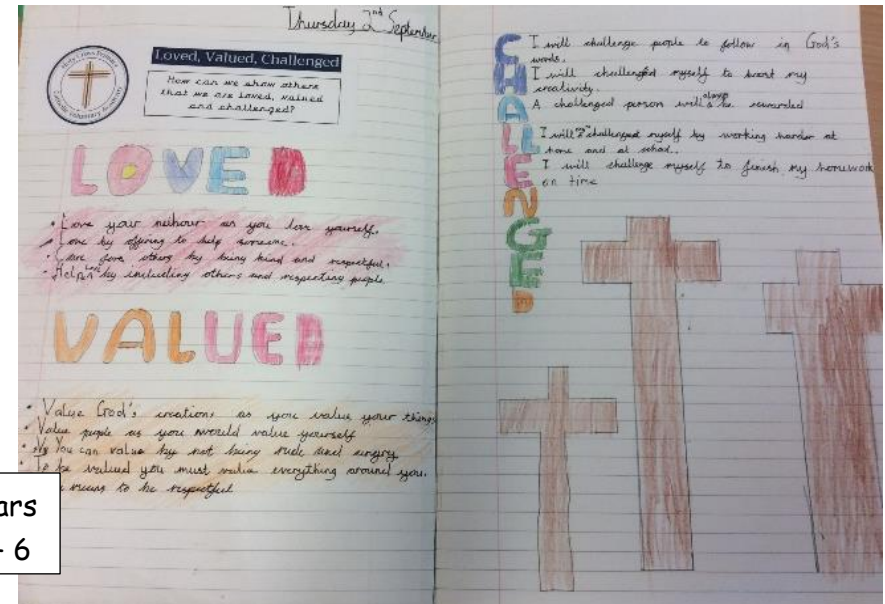 Thursday 2nd September
Holy Cross Primary
Catholic Voluntary Academy
Loved, Valued, Challenged
How can we show others
that we are loved, valued
and challenged?
LOVED
• Love your neihour as you love yourself.
• Love by offering to help someone.
• love others by being kind and respectful.
• Help by including others and respecting people
VALUED
• Value God's creations as you value your things
• Value people as you would value yourself
• You can value by not being rude and angry
• To be valued you must value everything around you.
means to be respectful
ars
- 6
CHALLENGED
I will challenge people to follow in God's
words.
I will challenged myself to boost my
creativity.
A challenged person will always be rewarded
I will challenged myself by working harder at
home and at school.
I will challenge myself to finish my homework
on time